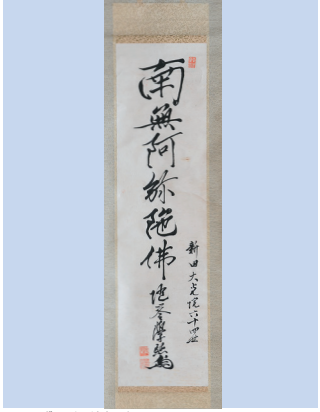 南無阿弥陀佛
新田大光院六十四世